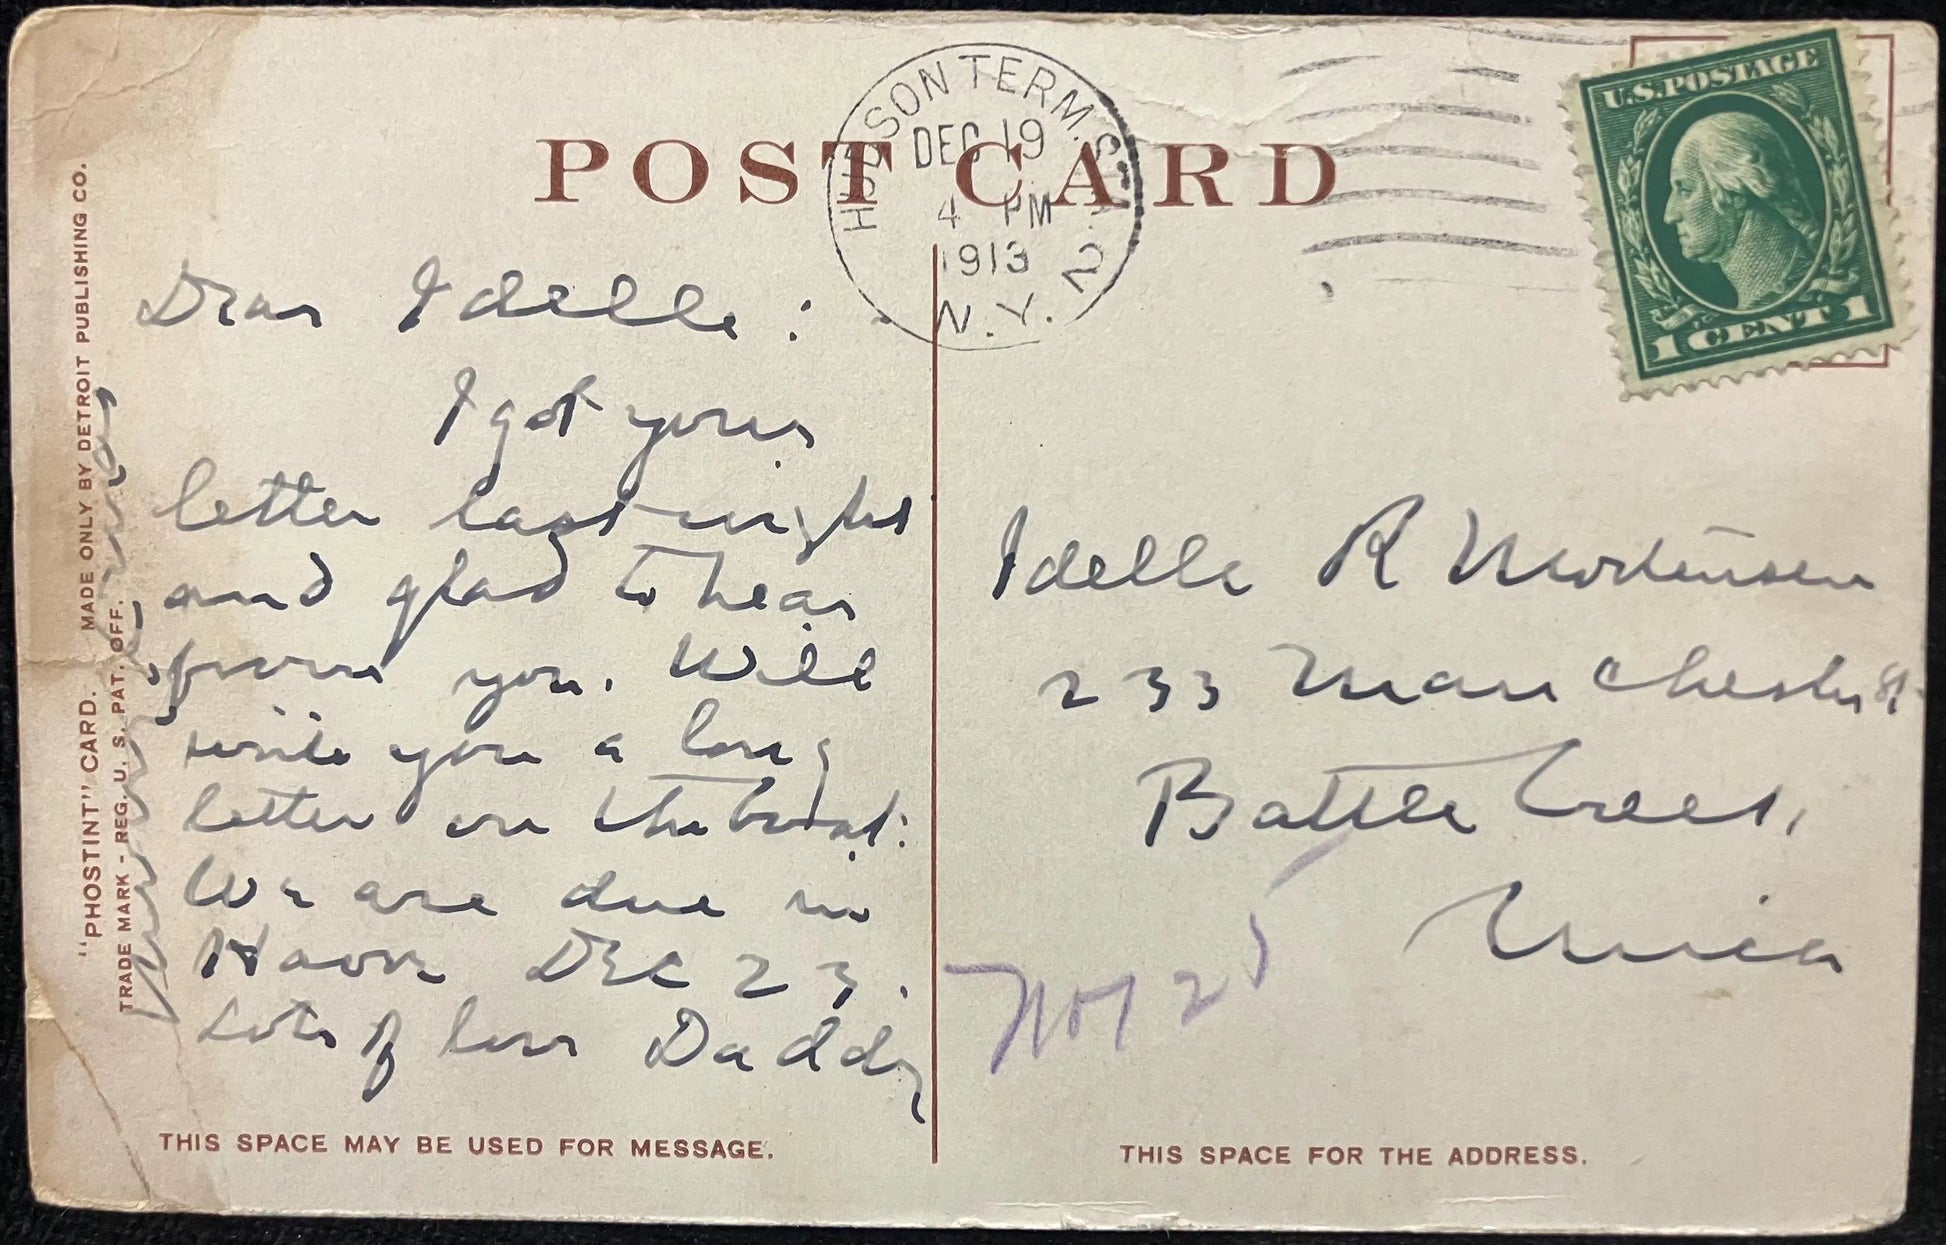 POST CARD
HUDSON TERM. STA.
DEC 19
4 PM
1913
N.Y. 2
U.S. POSTAGE
1 CENT 1
"PHOSTINT" CARD. MADE ONLY BY DETROIT PUBLISHING CO.
TRADE MARK - REG. U. S. PAT. OFF.
Dear Idelle:
I got your
letter last night
and glad to hear
from you. Will
write you a long
letter on the boat.
We are due in
Havre Dec 23.
Lots of love Daddy
Idelle R Mortensen
233 Manchester St
Battle Creek,
Mich
No 25
THIS SPACE MAY BE USED FOR MESSAGE.
THIS SPACE FOR THE ADDRESS.